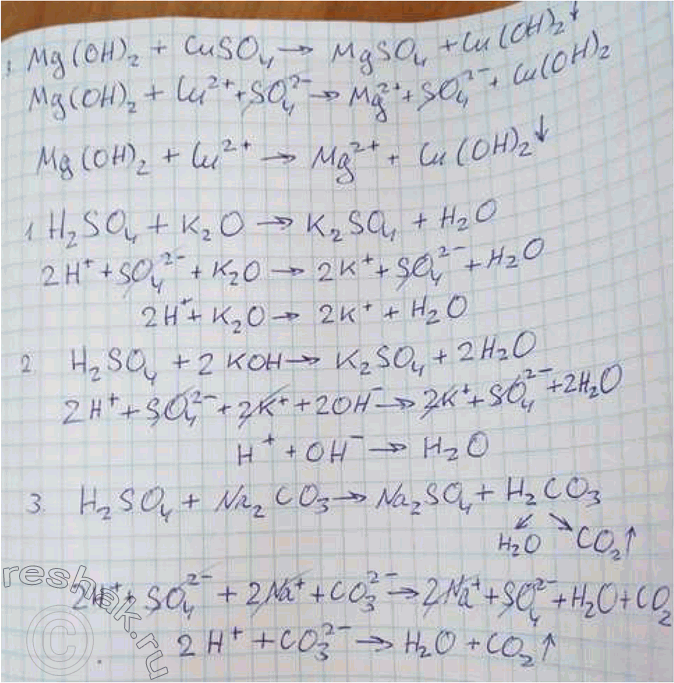 1 Mg(OH)₂ + CuSO₄ → MgSO₄ + Cu(OH)₂↓
Mg(OH)₂ + Cu²⁺ + SO₄²⁻ → Mg²⁺ + SO₄²⁻ + Cu(OH)₂
Mg(OH)₂ + Cu²⁺ → Mg²⁺ + Cu(OH)₂↓
1. H₂SO₄ + K₂O → K₂SO₄ + H₂O
2H⁺ + SO₄²⁻ + K₂O → 2K⁺ + SO₄²⁻ + H₂O
2H⁺ + K₂O → 2K⁺ + H₂O
2 H₂SO₄ + 2KOH → K₂SO₄ + 2H₂O
2H⁺ + SO₄²⁻ + 2K⁺ + 2OH⁻ → 2K⁺ + SO₄²⁻ + 2H₂O
H⁺ + OH⁻ → H₂O
3. H₂SO₄ + Na₂CO₃ → Na₂SO₄ + H₂CO₃
↙ ↘
H₂O CO₂↑
2H⁺ + SO₄²⁻ + 2Na⁺ + CO₃²⁻ → 2Na⁺ + SO₄²⁻ + H₂O + CO₂
2H⁺ + CO₃²⁻ → H₂O + CO₂↑
reshak.ru
©